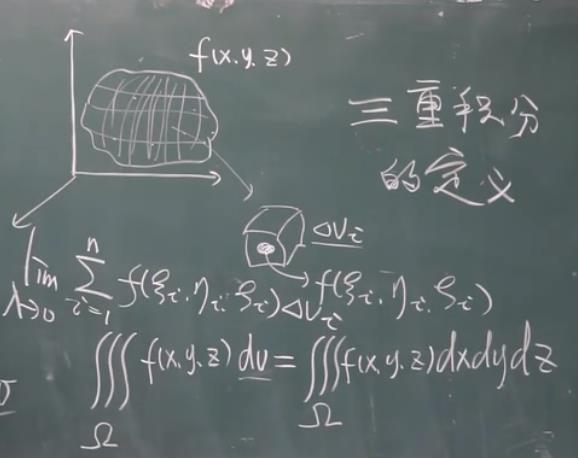 f(x.y.z)
三重积分
的定义
ΔVi
lim λ→0 n ∑ i=1 f(ξi.ηi.ζi)ΔVi f(ξi.ηi.ζi)
∭Ω f(x.y.z)dv=∭Ω f(x.y.z)dxdydz